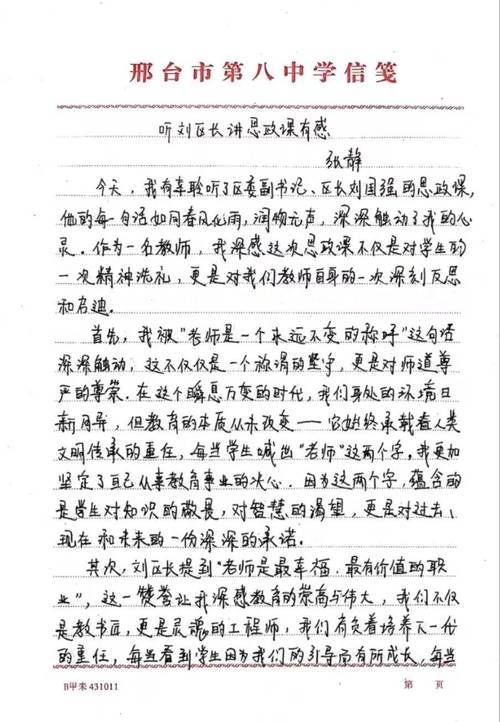 邢台市第八中学信笺
听刘区长讲思政课有感
张静
今天,我有幸聆听了区委副书记、区长刘国强的思政课,
他的每一句话如同春风化雨,润物无声,深深触动了我的心
灵。作为一名教师,我深感这次思政课不仅是对学生的
一次精神洗礼,更是对我们教师自身的一次深刻反思
和启迪。
首先,我被"老师是一个永远不变的称呼"这句话
深深触动,这不仅仅是一个称谓的坚守,更是对师道尊
严的尊崇。在这个瞬息万变的时代,我们身处的环境日
新月异,但教育的本质从未改变——它始终承载着人类
文明传承的重任,每当学生喊出"老师"这两个字,我更加
坚定了自己从事教育事业的决心。因为这两个字,蕴含的
是学生对知识的敬畏,对智慧的渴望,更是对过去、
现在和未来的一份深深的承诺。
其次,刘区长提到"老师是最幸福、最有价值的职
业",这一赞誉让我深感教育的崇高与伟大,我们不仅
是教书匠,更是灵魂的工程师,我们肩负着培养下一代
的重任,每当看到学生因为我们的引导而有所成长,每当
B甲来431011
第 页